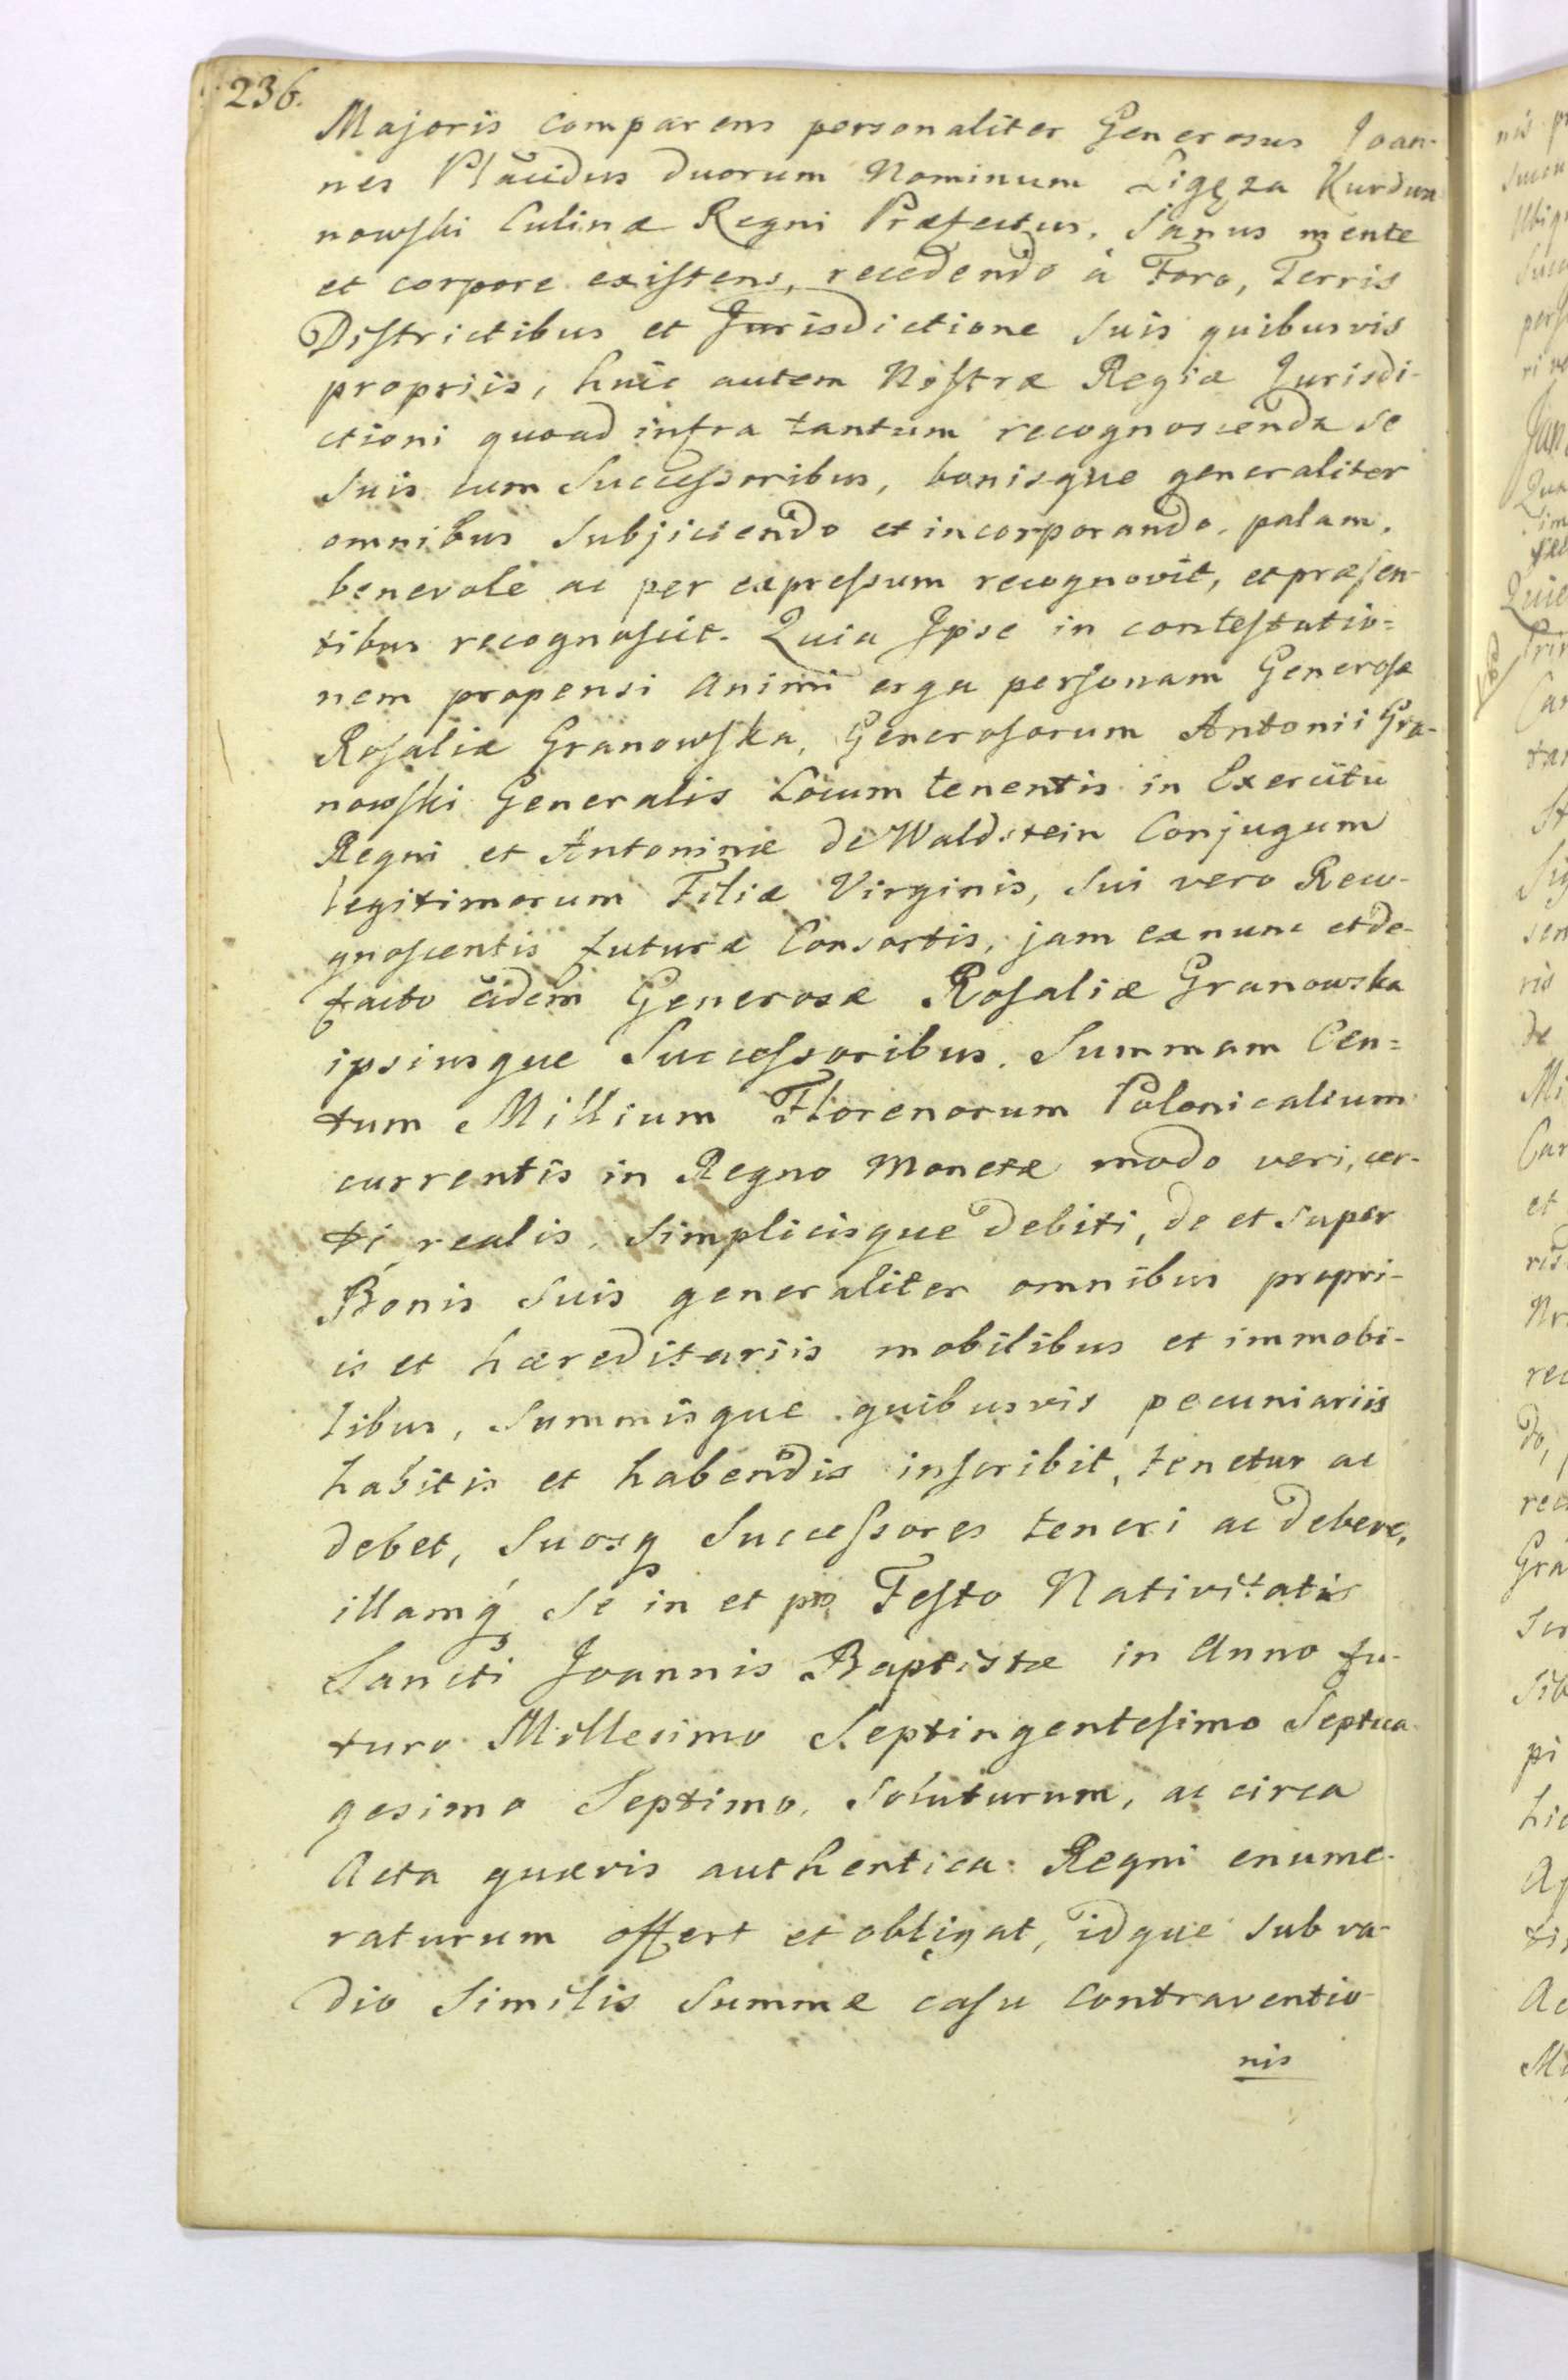 236.
Majoris comparens personaliter Generosus Joan-
nes Placidus duorum Nominum Ligęza Kurdwa
nowski Culinæ Regni Præfectus, Sanus mente
et corpore existens, recedendo à Foro, Terris
Districtibus et Jurisdictione suis quibusvis
propriis, huic autem Nostræ Regiæ Jurisdi-
ctioni quoad infra tantum recognoscenda se
suis cum Successoribus, bonisque generaliter
omnibus subjiciendo et incorporando, palam,
benevole ac per expressum recognovit, et præsen-
tibus recognoscit. Quia Ipse in contestatio=
nem propensi animi erga personam Generosæ
Rosaliæ Granowska, Generosorum Antonii Gra-
nowski Generalis Locum tenentis in Exercitu
Regni et Antoninæ de Waldstein Conjugum
legitimorum Filiæ Virginis, sui vero Reco-
gnoscentis futuræ Consortis, jam ex nunc et de-
facto eidem Generosæ Rosaliæ Granowska
ipsiusque Successoribus, Summam Cen=
tum Millium Florenorum Polonicalium
currentis in Regno Monetæ modo veri, cer-
ti realis, simplicisque debiti, de et super
Bonis suis generaliter omnibus propri-
is et hæreditariis mobilibus et immobi-
libus, Summisque quibusvis pecuniariis
habitis et habendis inscribit, tenetur ac
debet, Suosq Successores teneri ac debere,
illamq́ Se in et pro Festo Nativitatis
Sancti Joannis Baptistæ in Anno fu-
turo Millesimo Septingentesimo Septua-
gesimo Septimo, Soluturum, ac circa
Acta quævis authentica Regni enume-
raturum offert et obligat, idque sub va-
dio Similis Summæ casu contraventio-
nis